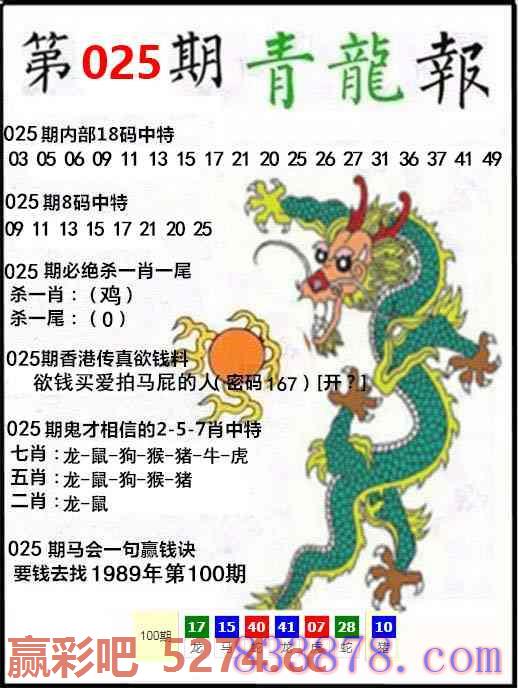 第025期青龍報
025期内部18码中特
03 05 06 09 11 13 15 17 21 20 25 26 27 31 36 37 41 49
025期8码中特
09 11 13 15 17 21 20 25
025 期必绝杀一肖一尾
杀一肖：（鸡）
杀一尾：（0）
025期香港传真欲钱料
欲钱买爱拍马屁的人(密码167）[开？]
025期鬼才相信的2-5-7肖中特
七肖：龙-鼠-狗-猴-猪-牛-虎
五肖：龙-鼠-狗-猴-猪
二肖：龙-鼠
025 期马会一句赢钱诀
要钱去找1989年第100期
100期 17 15 40 41 07 28 10
龙 马 蛇 龙 虎 蛇 猪
赢彩吧 5274.cc
838878.com